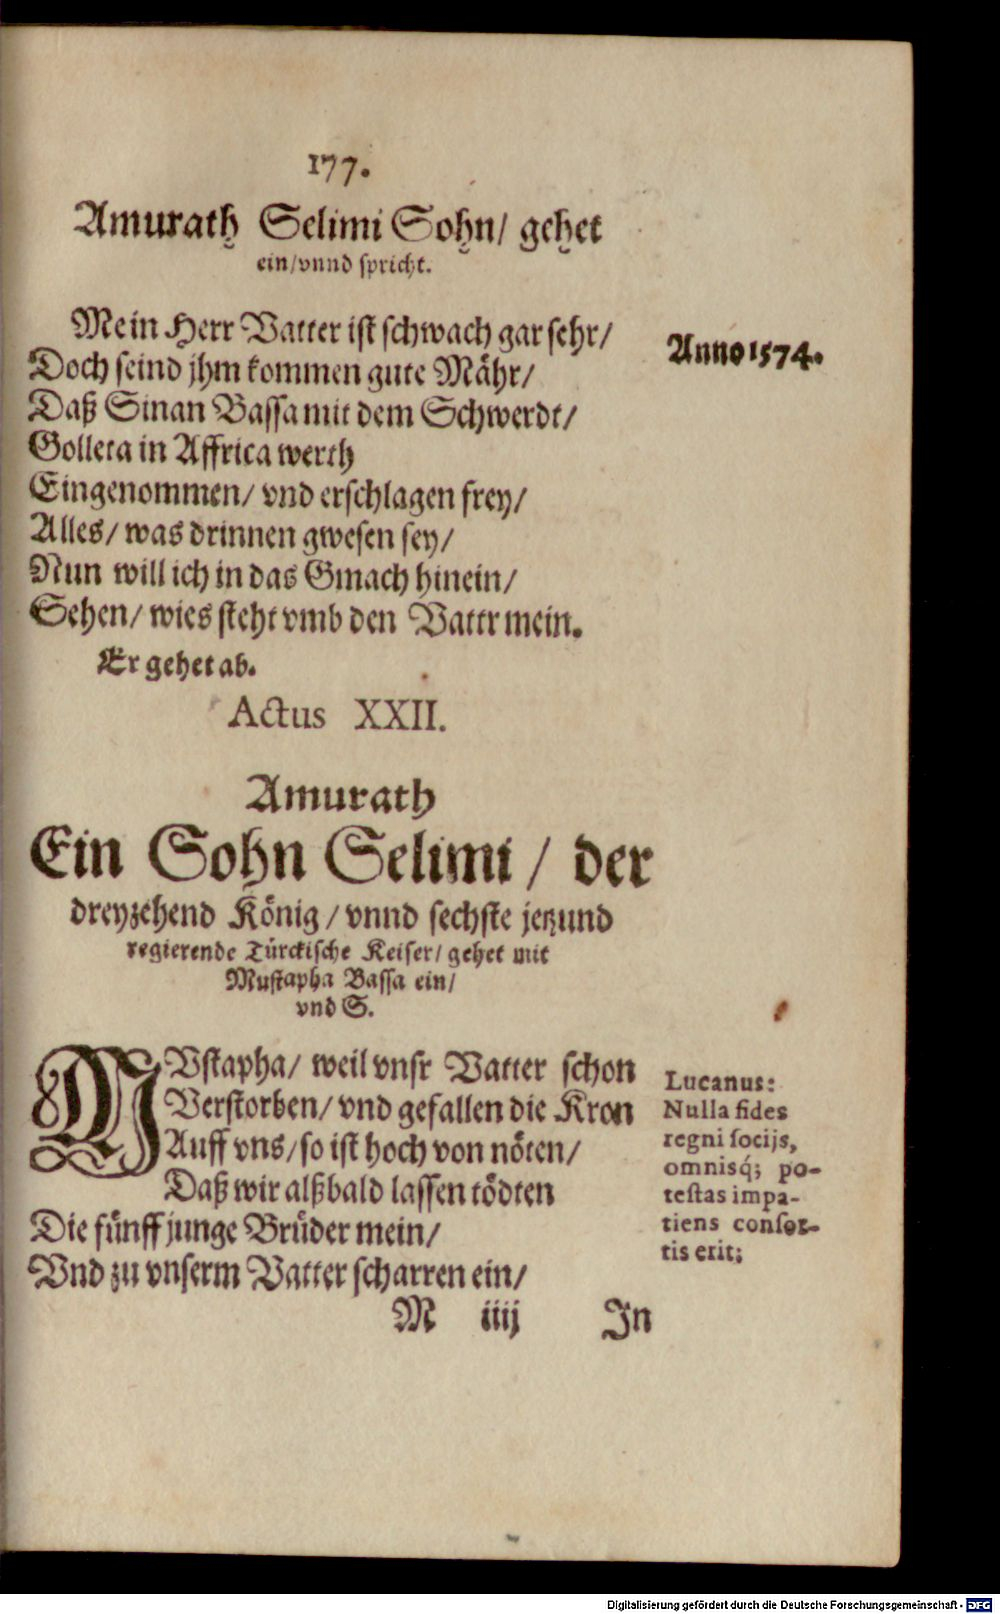 177.
Amurath Selimi Sohn/ gehet
ein/vnnd spricht.
Mein Herr Vatter ist schwach gar sehr/
Anno 1574.
Doch seind jhm kommen gute Mähr/
Daß Sinan Bassa mit dem Schwerdt/
Golleta in Affrica werth
Eingenommen/ vnd erschlagen frey/
Alles/ was drinnen gwesen sey/
Nun will ich in das Gmach hinein/
Sehen/ wies steht vmb den Vattr mein.
Er gehet ab.
Actus XXII.
Amurath
Ein Sohn Selimi / der
dreyzehend König/ vnnd sechste jetzund
regierende Türckische Keiser/ gehet mit
Mustapha Bassa ein/
vnd S.
MVstapha/ weil vnsr Vatter schon
Verstorben/ vnd gefallen die Kron
Auff vns/ so ist hoch von nöten/
Daß wir alßbald lassen tödten
Die fünff junge Brüder mein/
Vnd zu vnserm Vatter scharren ein/
Lucanus:
Nulla fides
regni socijs,
omnisq́; po-
testas impa-
tiens consor-
tis erit;
M iiij In
Digitalisierung gefördert durch die Deutsche Forschungsgemeinschaft - DFG